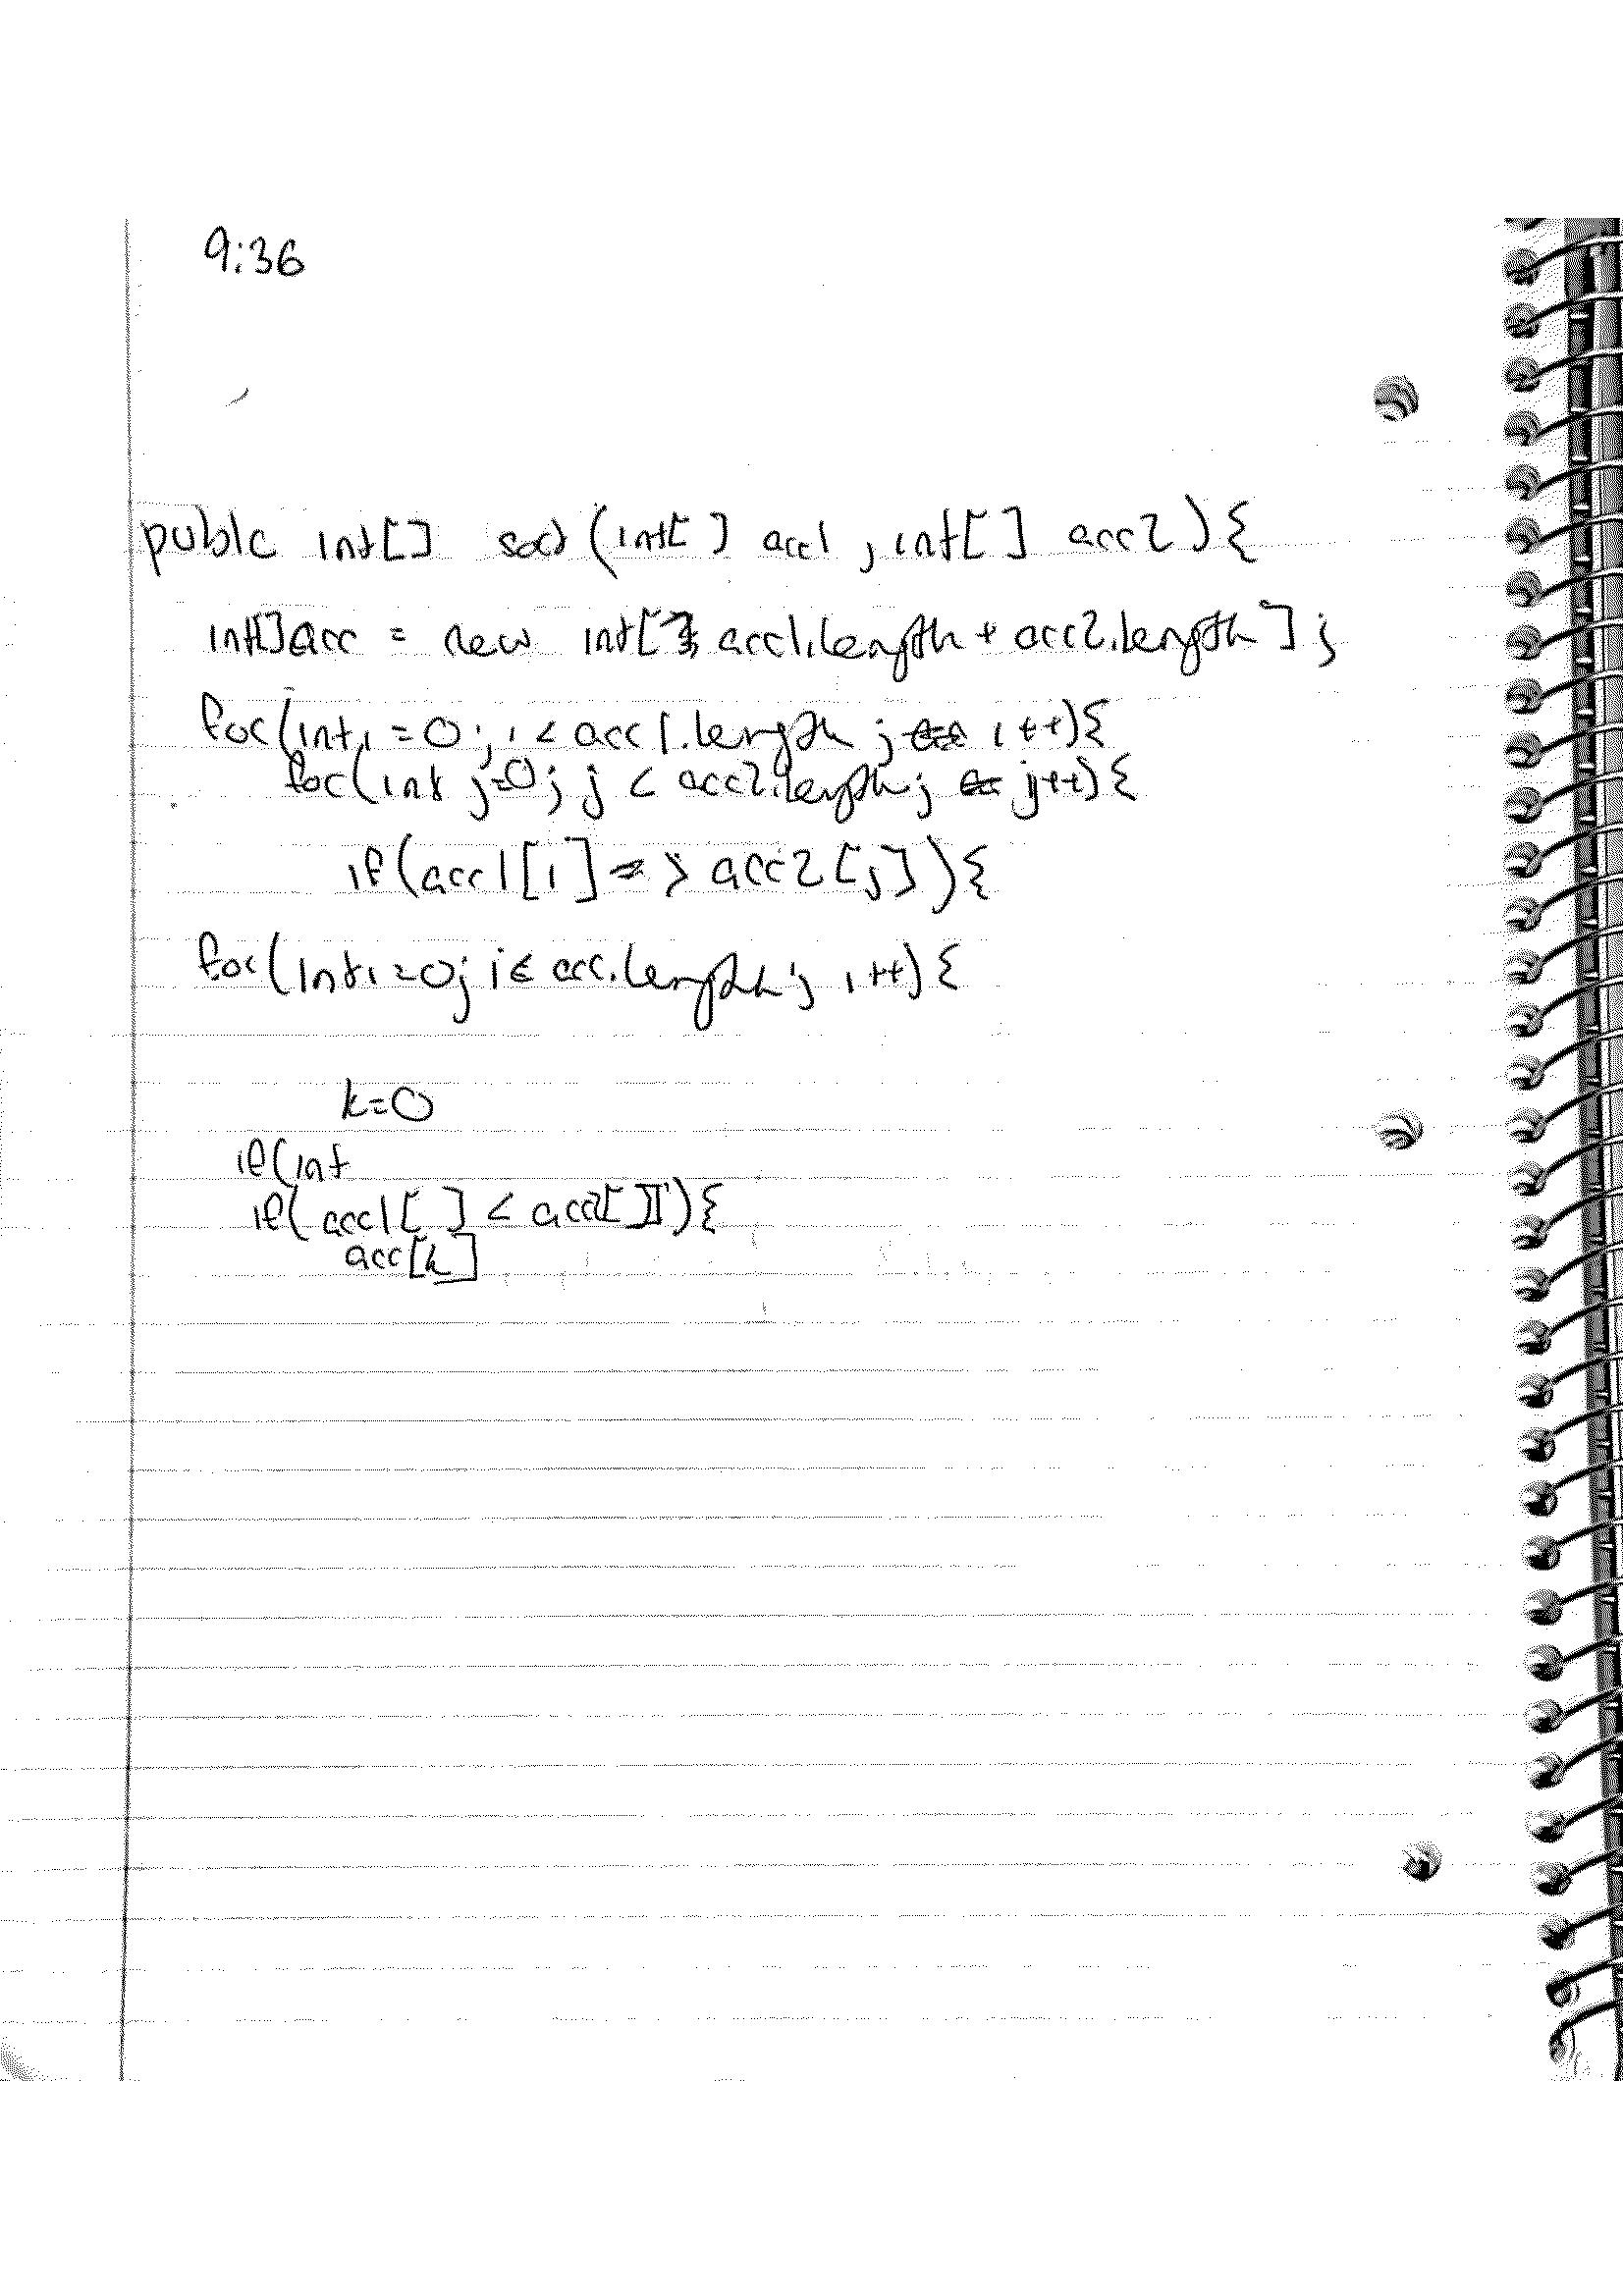 9:36
public int[] sort (int[] arr1, int[] arr2){
int[]arr = new int[ arr1.length + arr2.length];
for(int i=0; i < arr1.length; i++){
for(int j=0; j < arr2.length; j++){
if(arr1[i] > arr2[j]){
for(int i=0; i≤ arr.length; i++){
k=0
if(int
if(arr1[ ] < arr2[ ]){
arr[k]